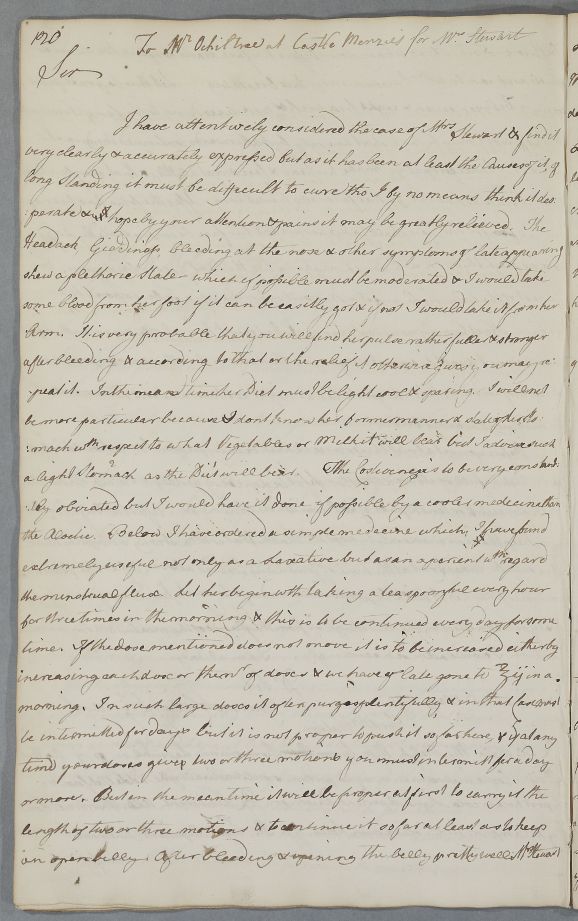 120
To Mr Ochiltree at Castle Menzies for Mrs Stewart
Sir
I have attentively considered the case of Mrs Stewart & find it
very clearly & accurately expressed but as it has been at least the Causes of it, of
long standing it must be difficult to cure tho I by no means think it des
:perate & hope by your attention & pains it may be greatly relieved. The
Headach Giddiness, bleeding at the nose & other symptoms of late appearing
shew a plethoric State which if possible must be moderated & I would take
some blood from her foot if it can be easily got & if not I would take it from her
Arm. It is very probable that you will find her pulse rather fuller & stronger
after bleeding & according to that or the relief it otherwise gives you may re:
:peat it. In the mean time her Diet must be light cool & sparing. I will not
be more particular because I dont know her former manner & state of her Sto:
:mach wth respect to what Vegetables or Milk it will bear but I advise such
a light Stomach as the Diet will bear. The Costiveness is to be very constant:
:ly obviated but I would have it done if possible by a cooler medicine than
the Aloetic. Below I have ordered a simple medicine which I have found
extremely useful not only as a Laxative but as an aperient wth regard
the menstrual flux. Let her begin wth taking a teaspoonful every hour
for three times in the morning & this is to be continued every day for some
time. If the dose mentioned does not move it is to be increased either by
increasing each dose or the nr. of doses & we have of late gone to ℥ij in a
morning. In such large doses it often purges plentifully & in that case must
be intermitted for days but it is not proper to push it so far here, & if at any
time your doses give two or three motions you must intermit for a day
or more. But in the mean time it will be proper at first to carry it the
length of two or three motions & to continue it so far at least as to keep
an open belly. After bleeding & opening the belly pretty well Mrs Stewart